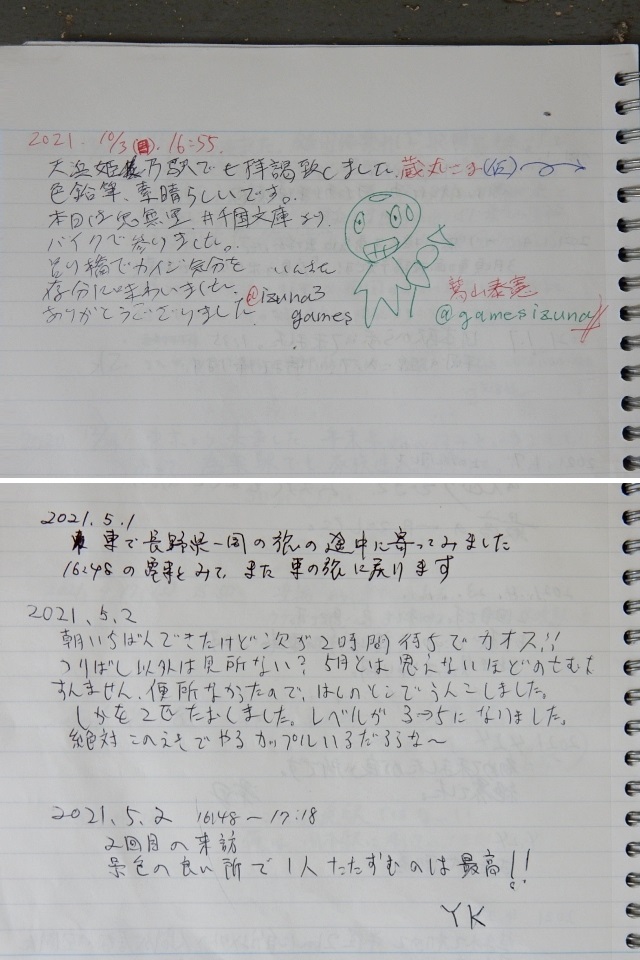 2021. 10/3(日). 16:55.
大浜姫乃駅でも拝謁致しました. 蔵丸こ(仮)
色鉛筆、素晴らしいです。
本日は鬼無里 井千国文庫より.
バイクで参りました。
吊り橋でカイジ気分を
存分に味わいました. @izuna3
ありがとうございました. games
萬山泰憲
@gamesizuna
2021.5.1
車で長野県一周の旅の途中に寄ってみました
16:48の電車をみて、また車の旅に戻ります
2021.5.2
朝いちばんできたけど次が2時間待ちでカオス!!
つりばし以外は見所ない? 5月とは思えないほどのさむさ
すんません、便所なかったので、はしのとこでうんこしました。
しかを2匹たおしました。レベルが3→5になりました。
絶対このえきでやるカップルいるだろうな〜
2021.5.2 16:48〜17:18
2回目の来訪
景色の良い所で1人たたずむのは最高!!
YK